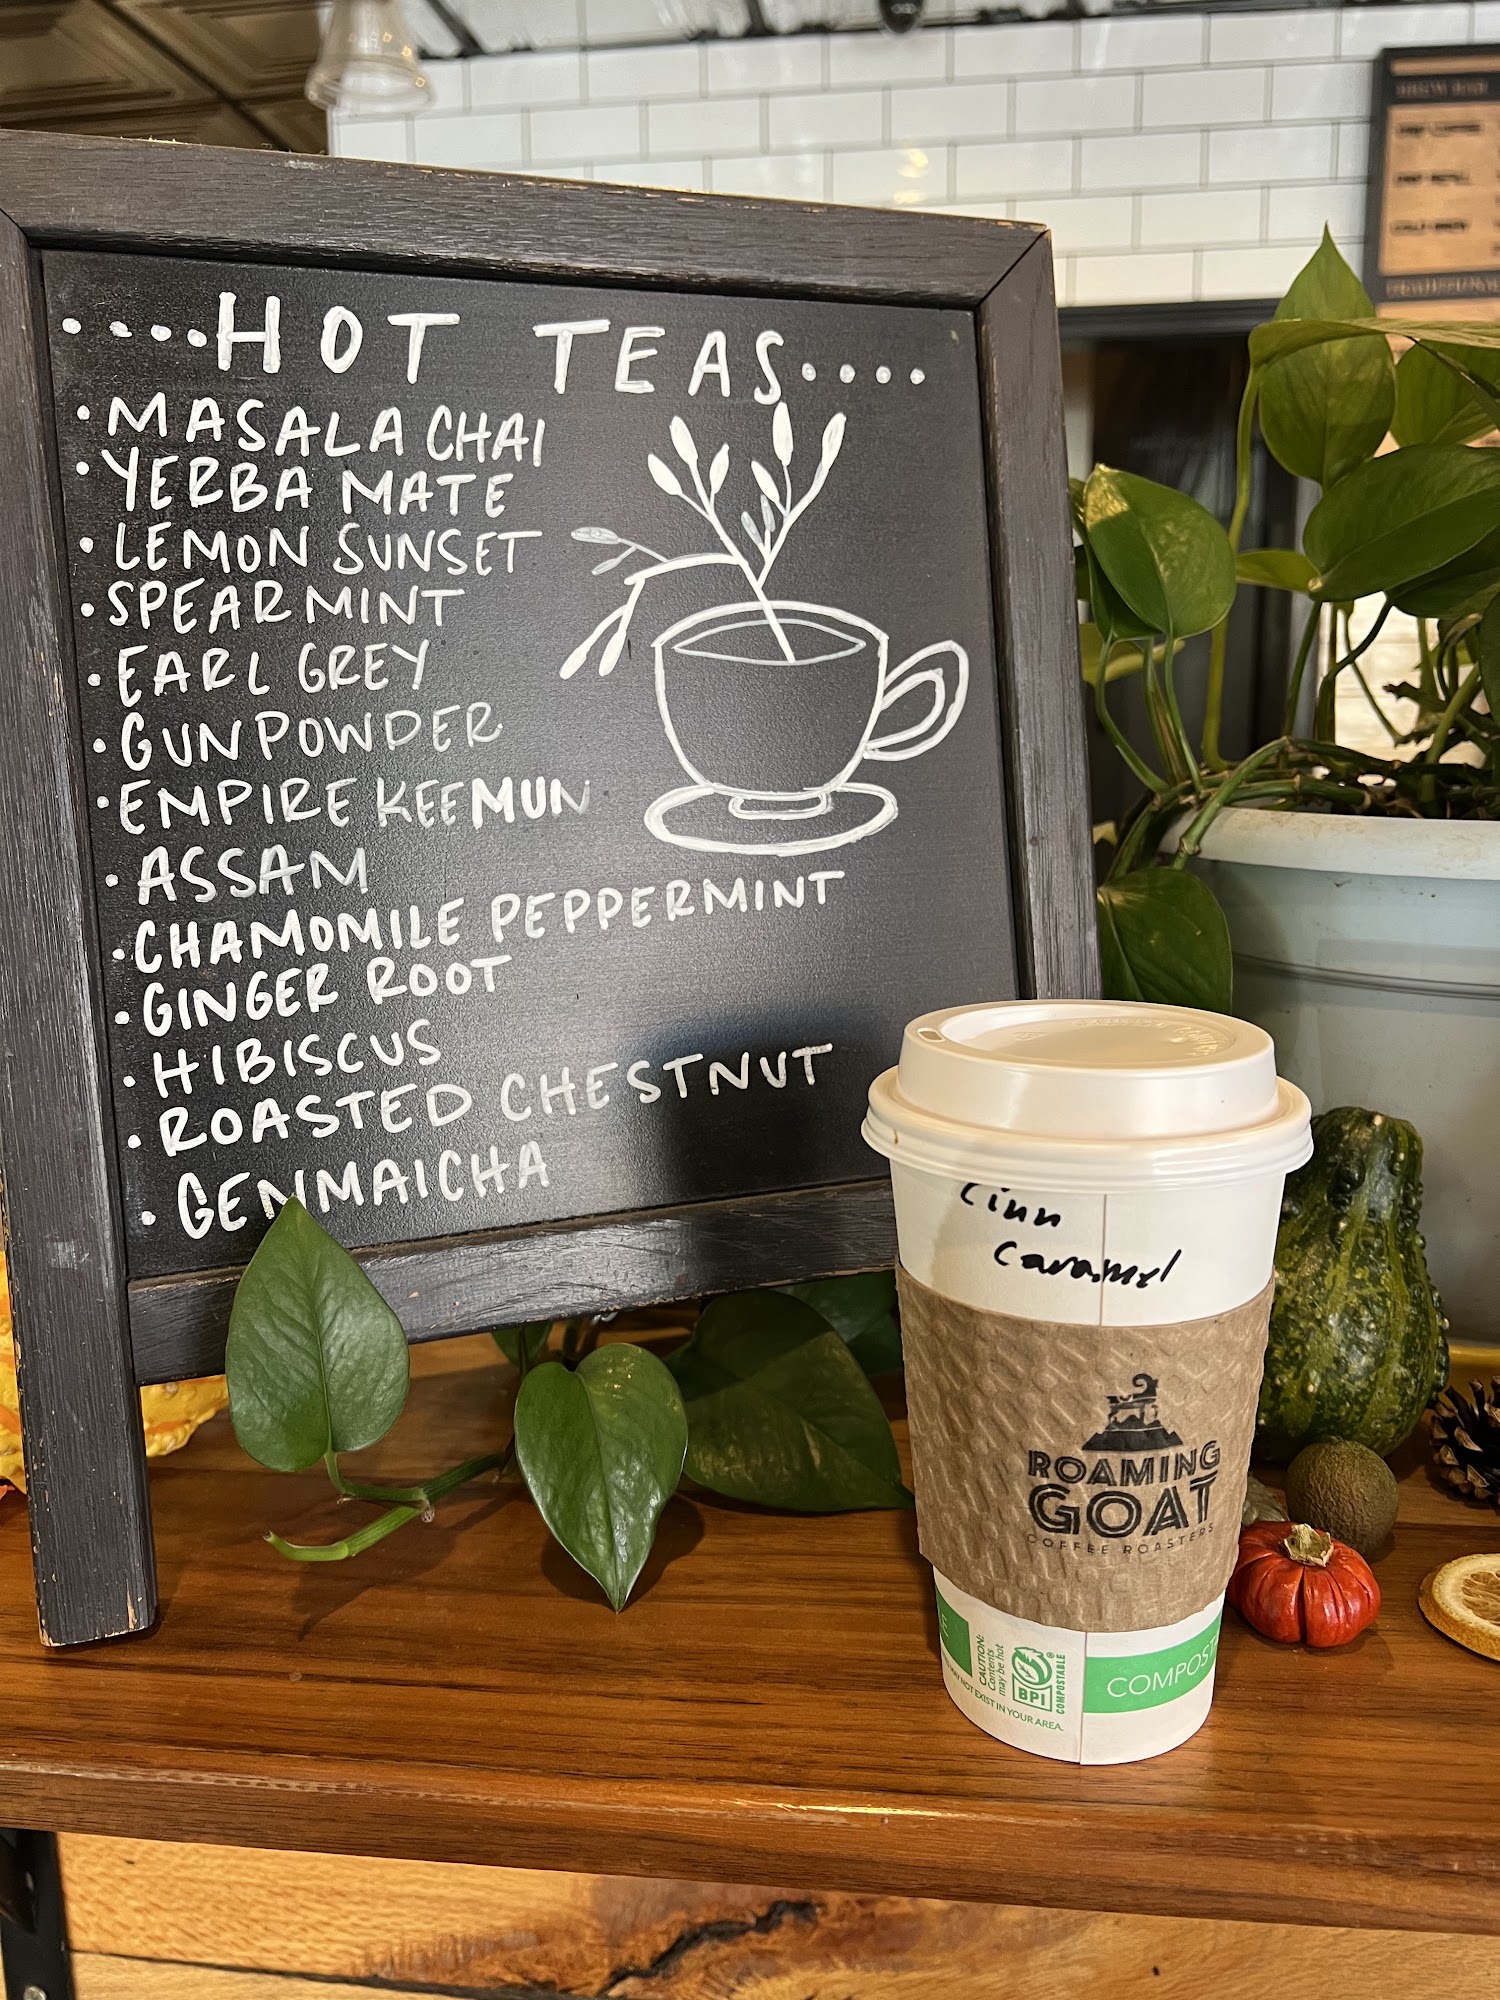 ....HOT TEAS....
• MASALA CHAI
• YERBA MATE
• LEMON SUNSET
• SPEARMINT
• EARL GREY
• GUNPOWDER
• EMPIRE KEEMUN
• ASSAM
• CHAMOMILE PEPPERMINT
• GINGER ROOT
• HIBISCUS
• ROASTED CHESTNUT
• GENMAICHA
Cinn
Caramel
ROAMING
GOAT
COFFEE ROASTERS
E
CAUTION:
Contents
may be hot
BPI®
COMPOSTABLE
MAY NOT EXIST IN YOUR AREA.
COMPOST
BREW BAR
COLD BREW
TRADITIONAL